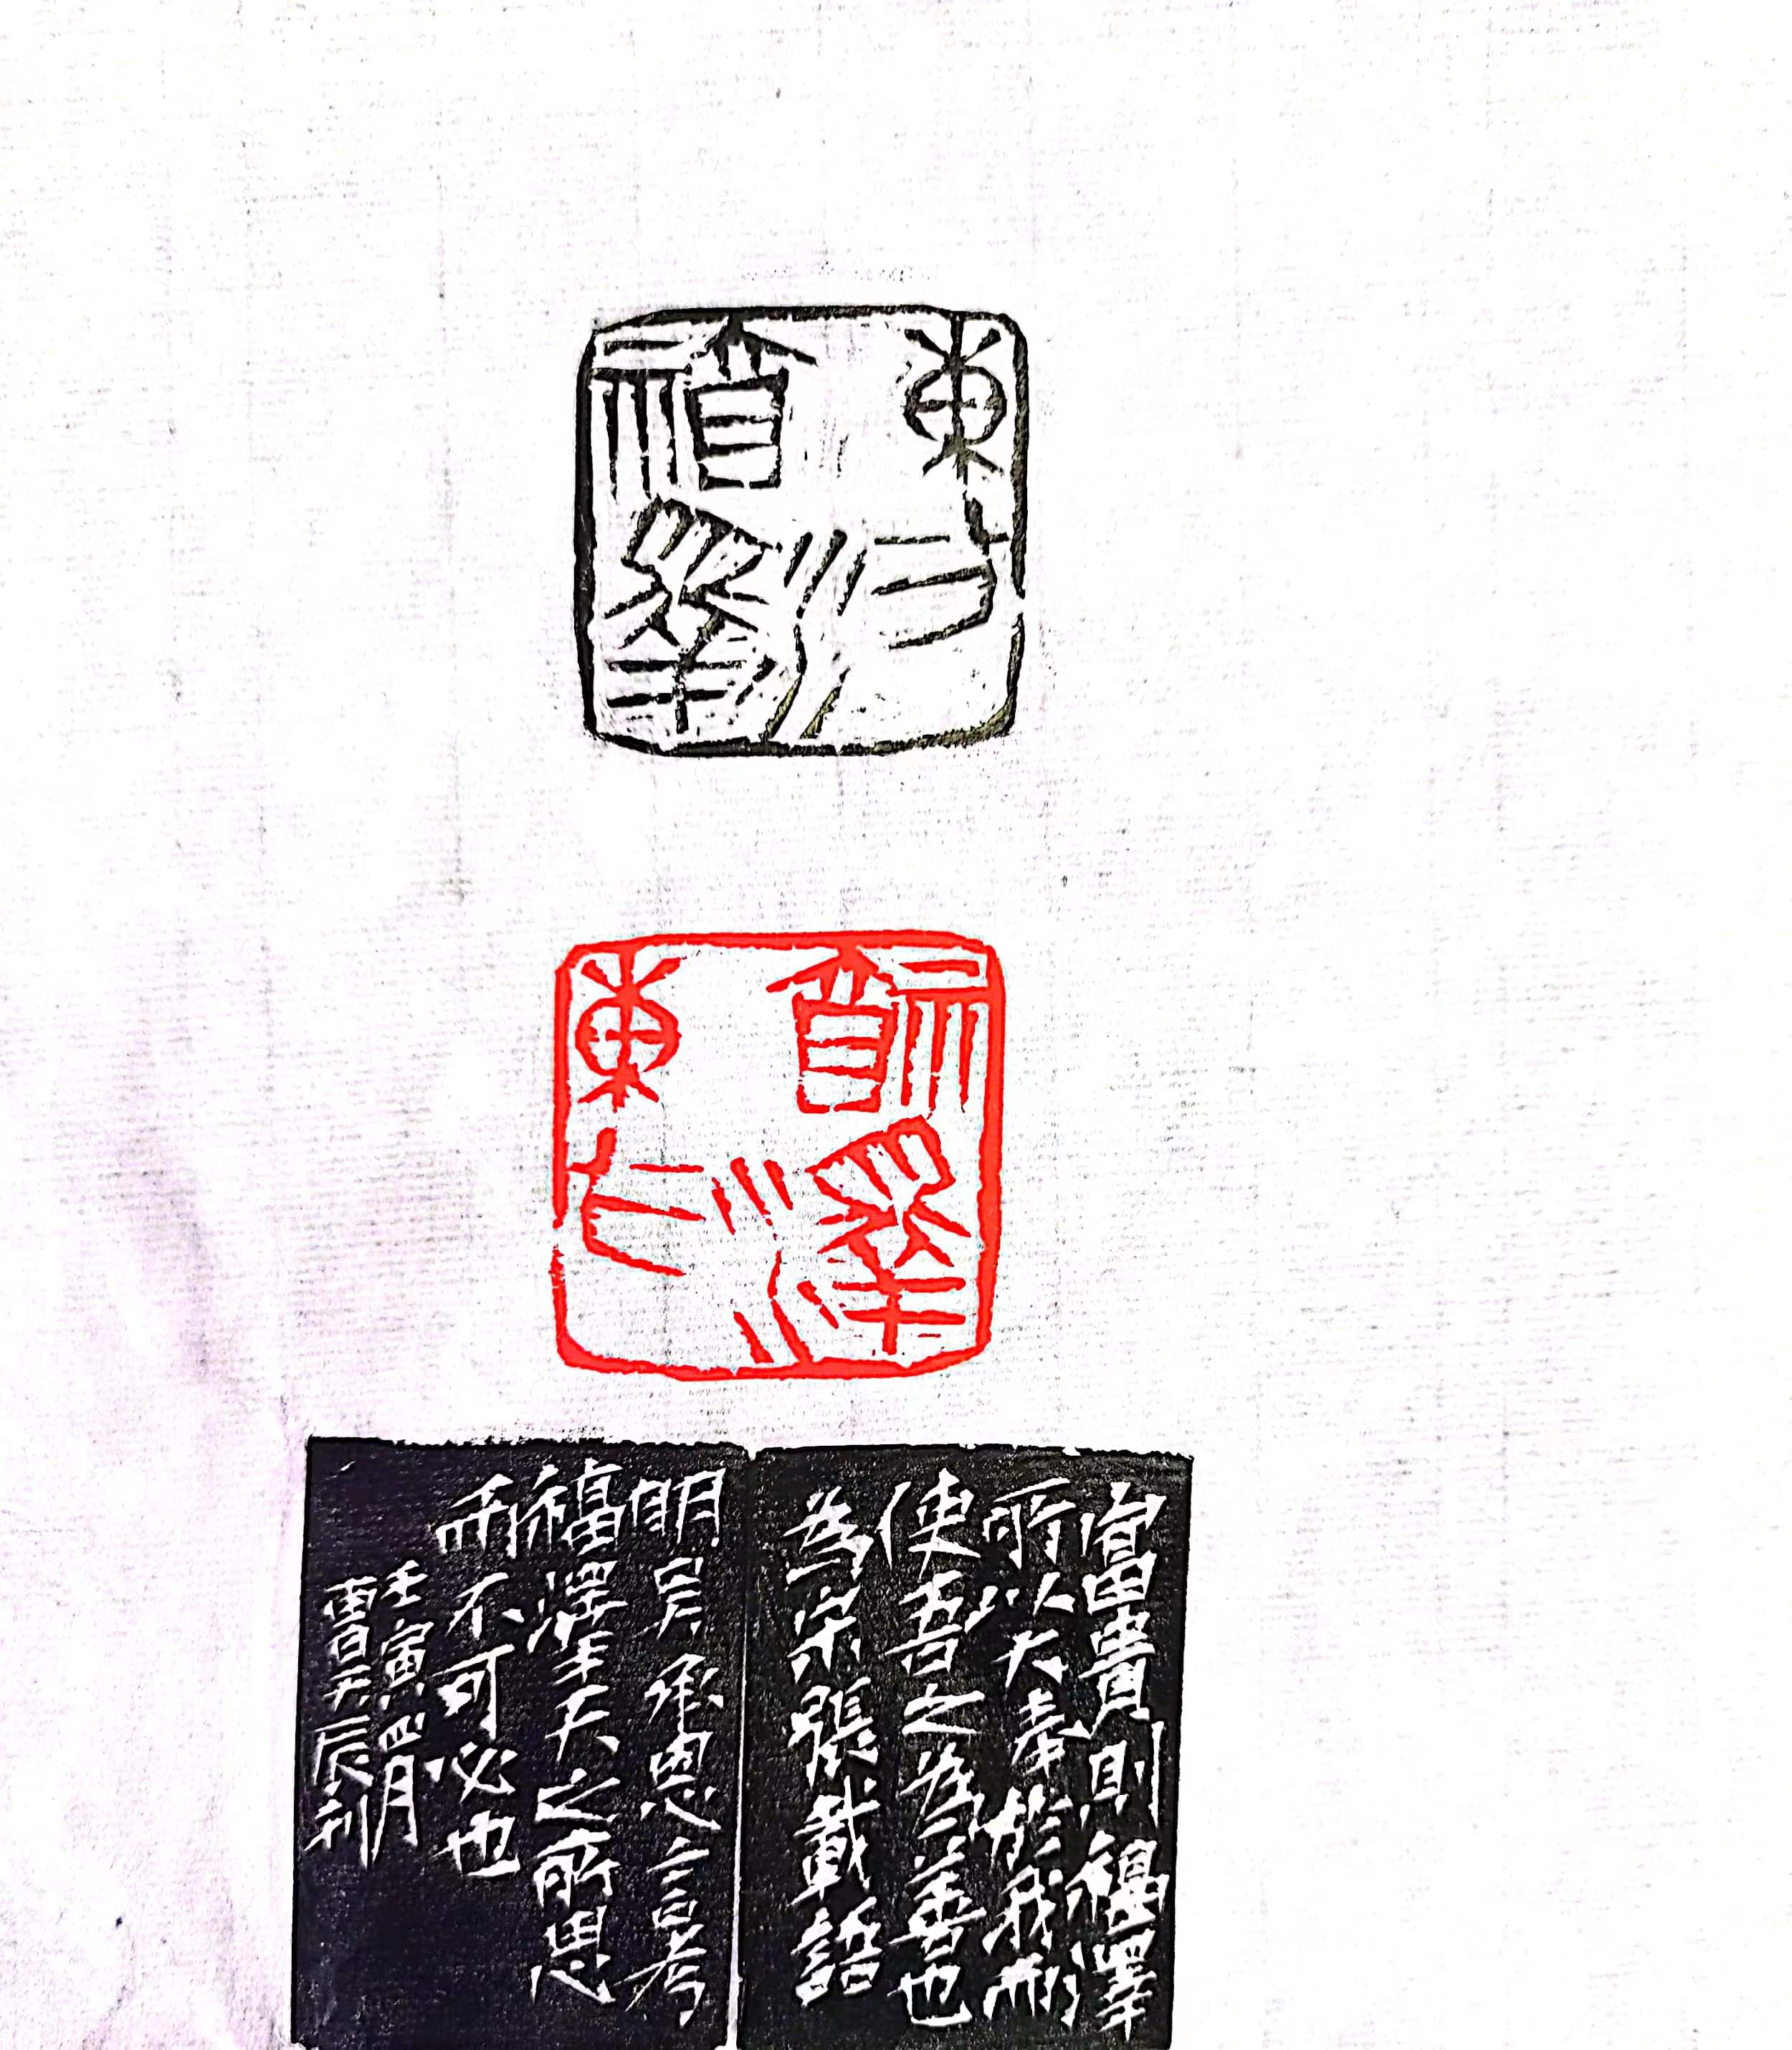 福澤
東方
富貴則福澤
所以大奉於我而
使吾之為善也
為宋張載語
明吳承恩言考
福澤乎天之所思
而不可必也
壬寅四月
雷昊辰刊